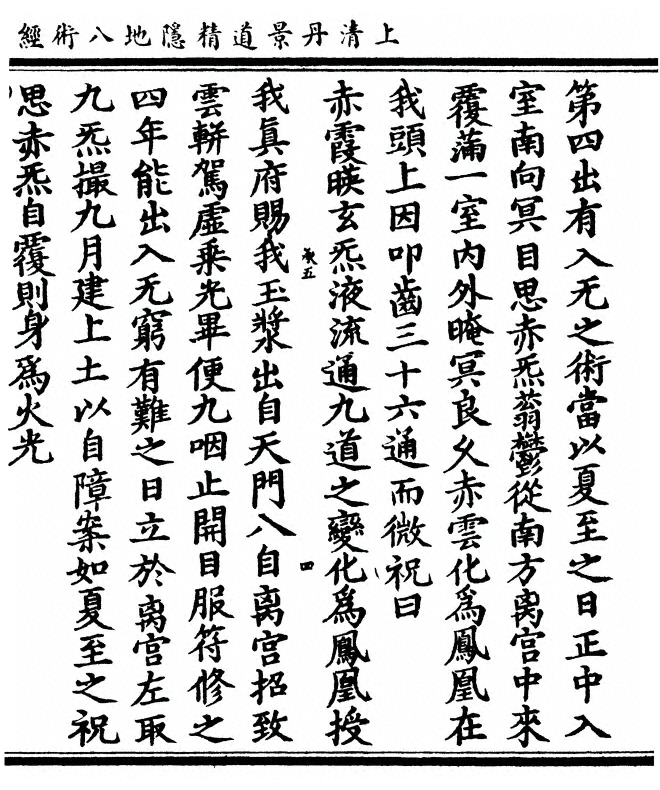 上清丹景道精隱地八術經
第四出有入无之術當以夏至之日正中入
室南向冥目思赤炁蓊鬱從南方离宮中來
覆滿一室內外晻冥良久赤雲化爲鳳凰在
我頭上因叩齒三十六通而微祝曰
赤霞暎玄炁液流通九道之變化爲鳳凰授
承五
四
我眞府賜我玉漿出自天門入自离宮招致
雲軿駕虛乘光畢便九咽止開目服符修之
四年能出入无窮有難之日立於离宮左取
九炁撮九月建上土以自障案如夏至之祝
思赤炁自覆則身爲火光